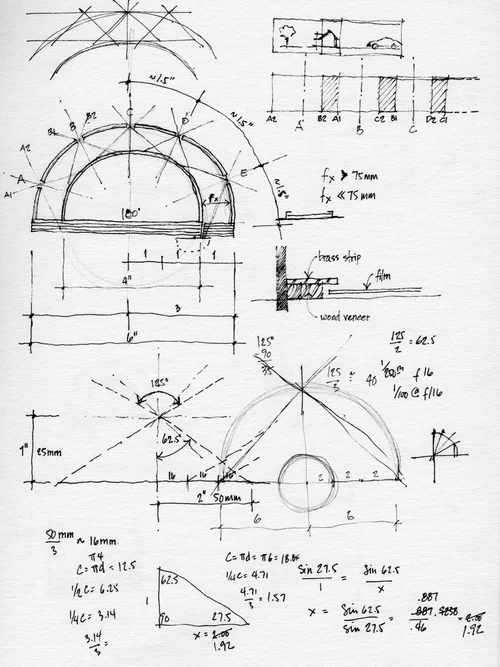 ~1.5"
~1.5"
~1.5"
A2 A B2 A1 B C2 B1 C D2 C1
A1 A A2 B1 B B2 C D E
fx
180°
fx > 75mm
fx << 75mm
1 1 1
4"
3
6"
brass strip
film
wood veneer
125/2 = 62.5
125°
- 90
35
125/3 ≈ 40
f 16
1/100 @ f/16
125°
62.5
1" 25mm
16 16 16
2" 50mm
2 2 2
6 6
50mm/3 ~ 16mm
π4
C = πd = 12.5
1/2 C = 6.25
1/4 C = 3.14
3.14/3 =
62.5
1
90 27.5
x = 2.00
1.92
C = πd = π6 = 18.84
1/4 C = 4.71
4.71/3 = 1.57
Sin 27.5/1 = Sin 62.5/x
x = Sin 62.5/Sin 27.5 = .887/.46 = 1.92